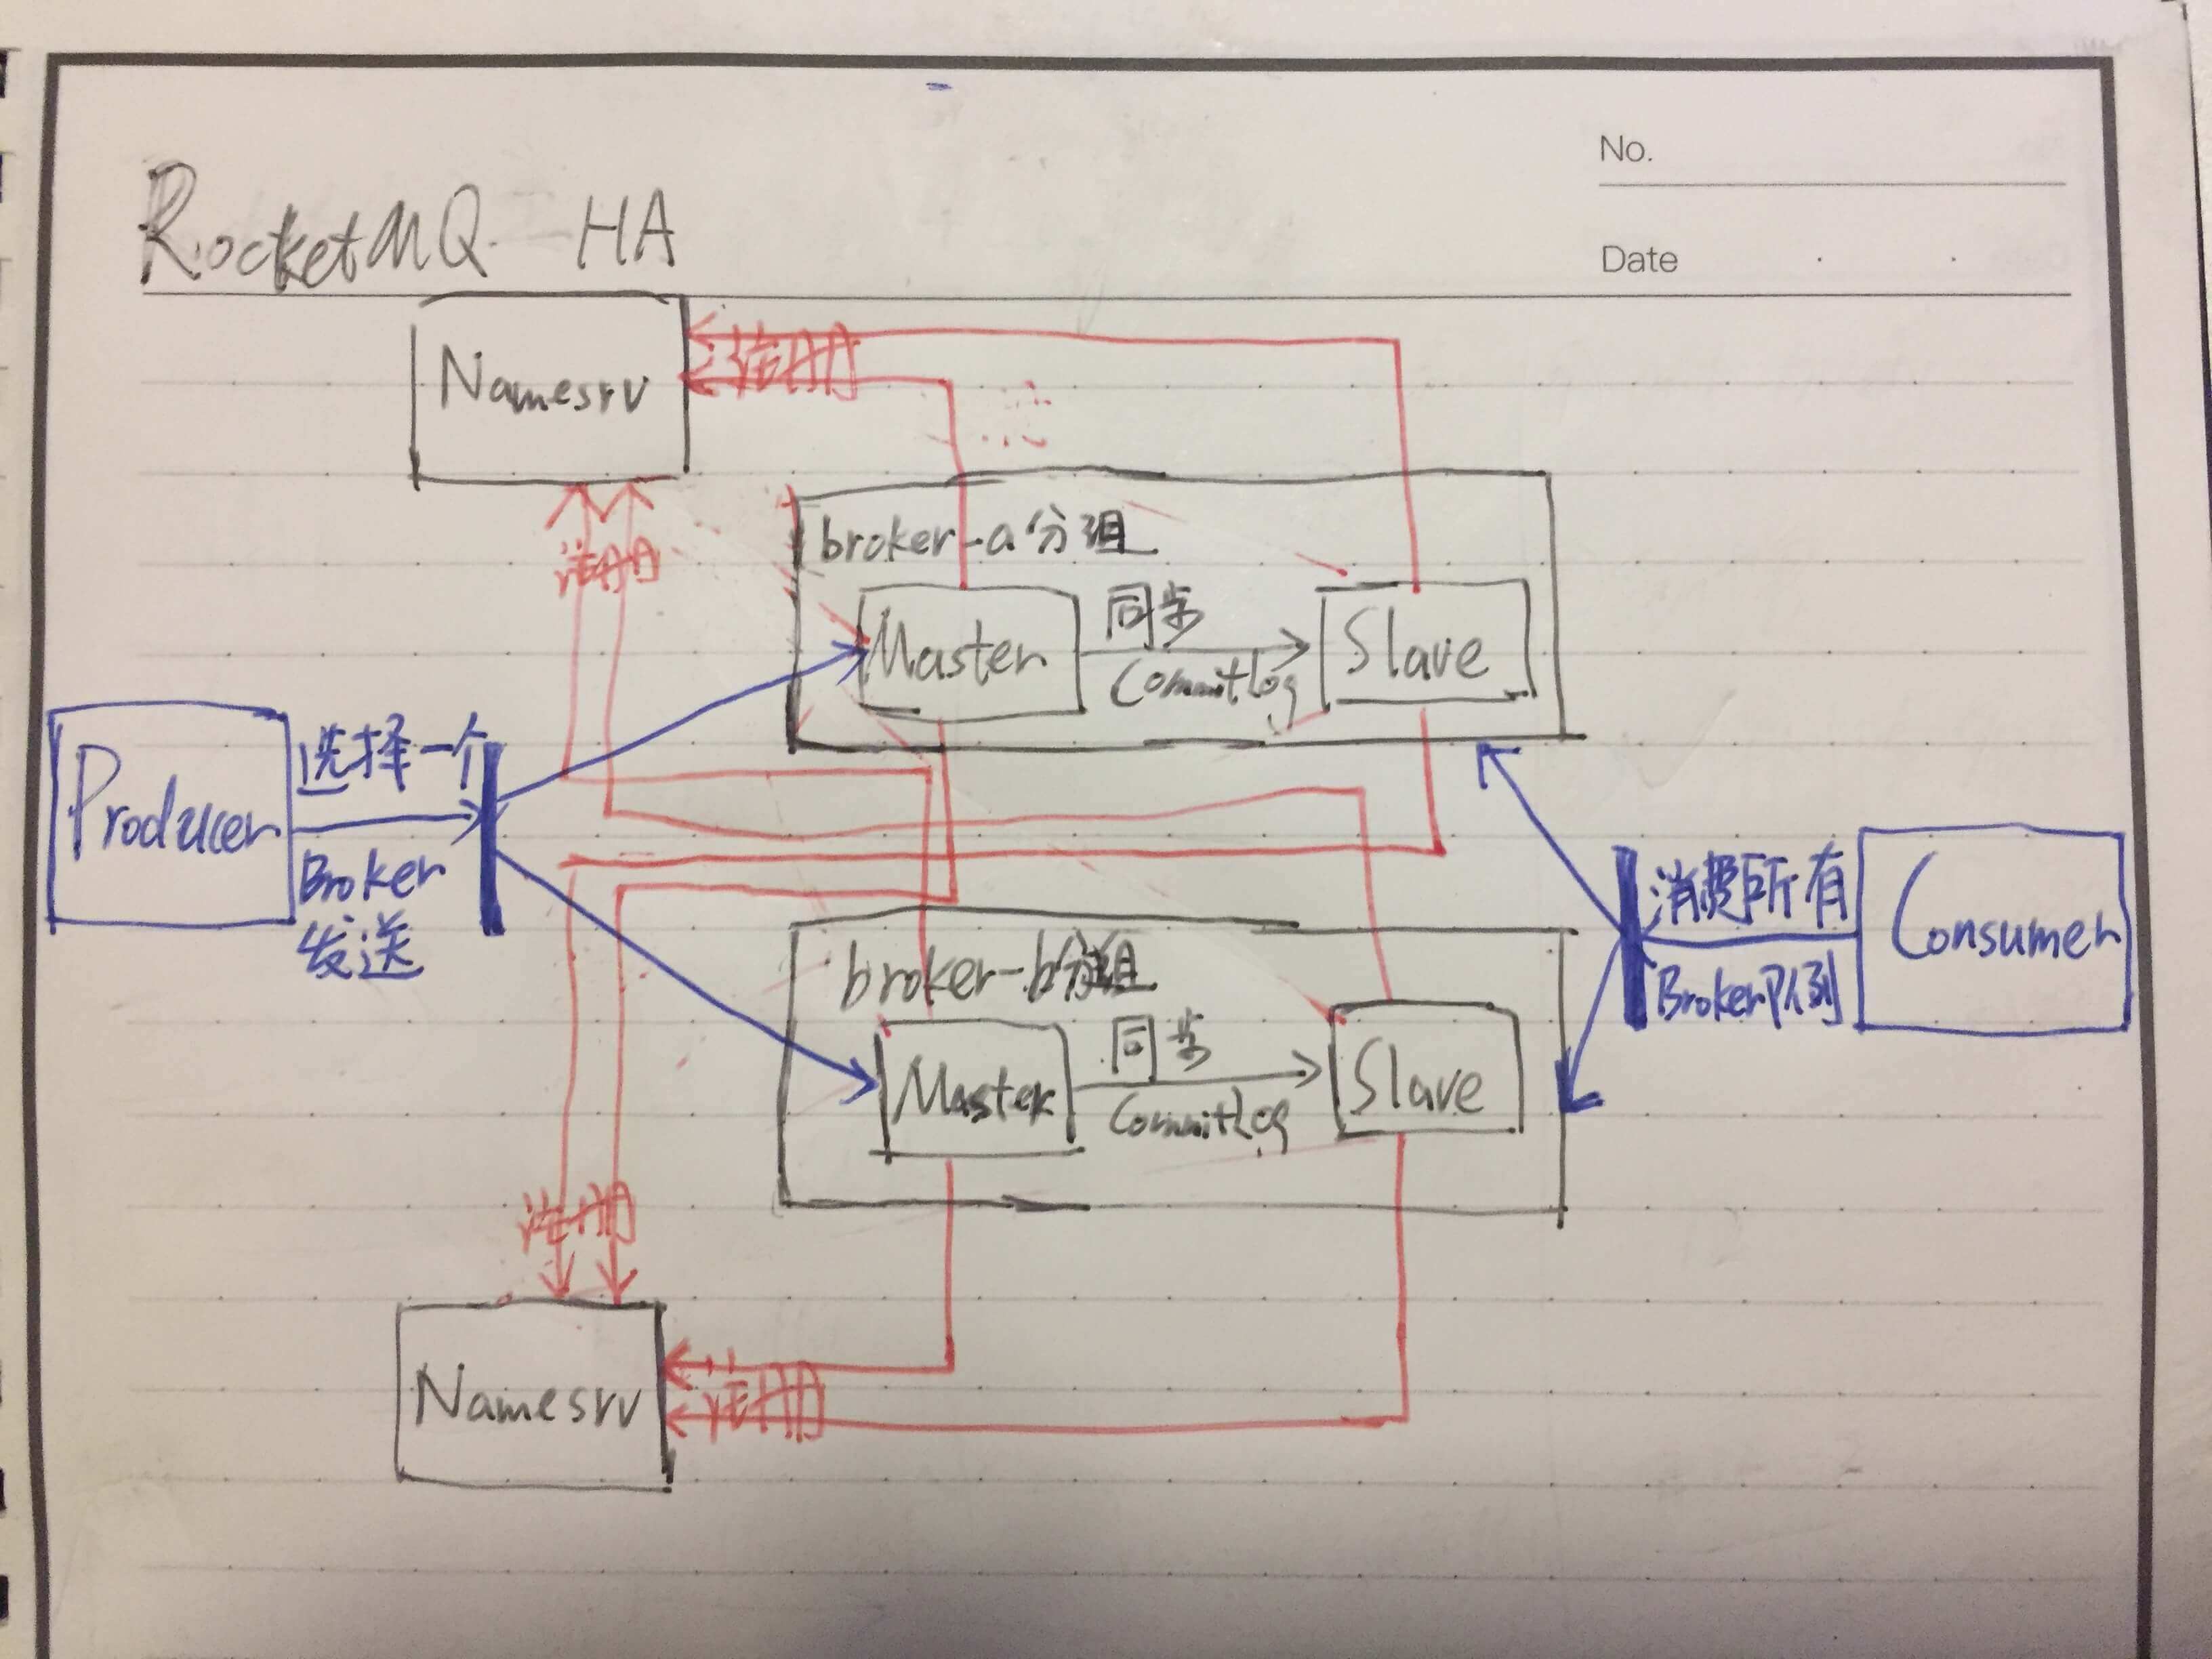 No.
Date
RocketMQ HA
Namesrv
注册
注册
broker-a分组
Master
同步
CommitLog
Slave
Producer
选择一个
Broker
发送
消费所有
Broker队列
Consumer
broker-b分组
Master
同步
CommitLog
Slave
注册
Namesrv
注册